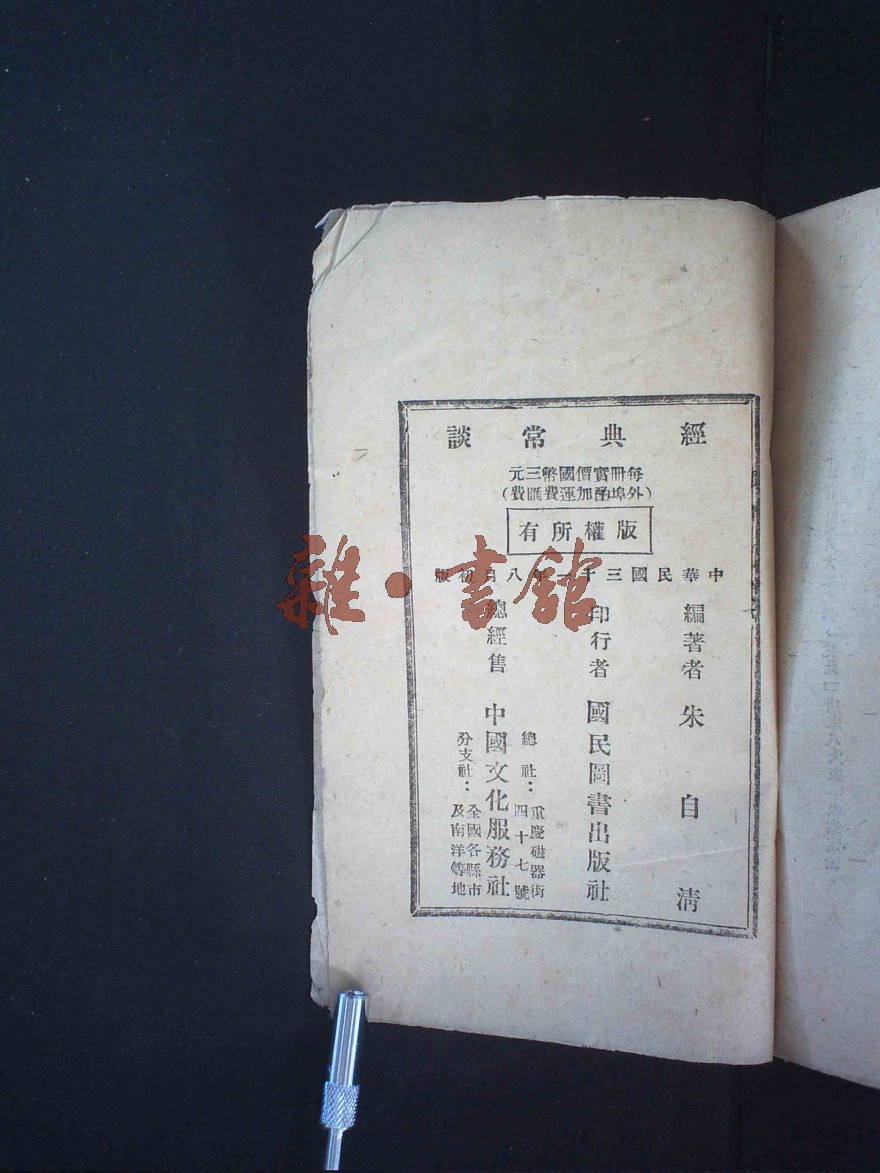 經典常談
每冊實價國幣三元
（外埠酌加運費匯費）
版權所有
中華民國三十 年八月初版
編著者 朱自清
印行者 國民圖書出版社
總經售 中國文化服務社
總社：重慶磁器街四十七號
分支社：全國各縣市及南洋等地
雜·書館